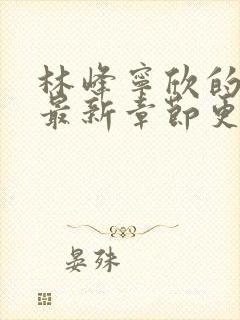 林峰寧欣的
最新章節更
晏殊